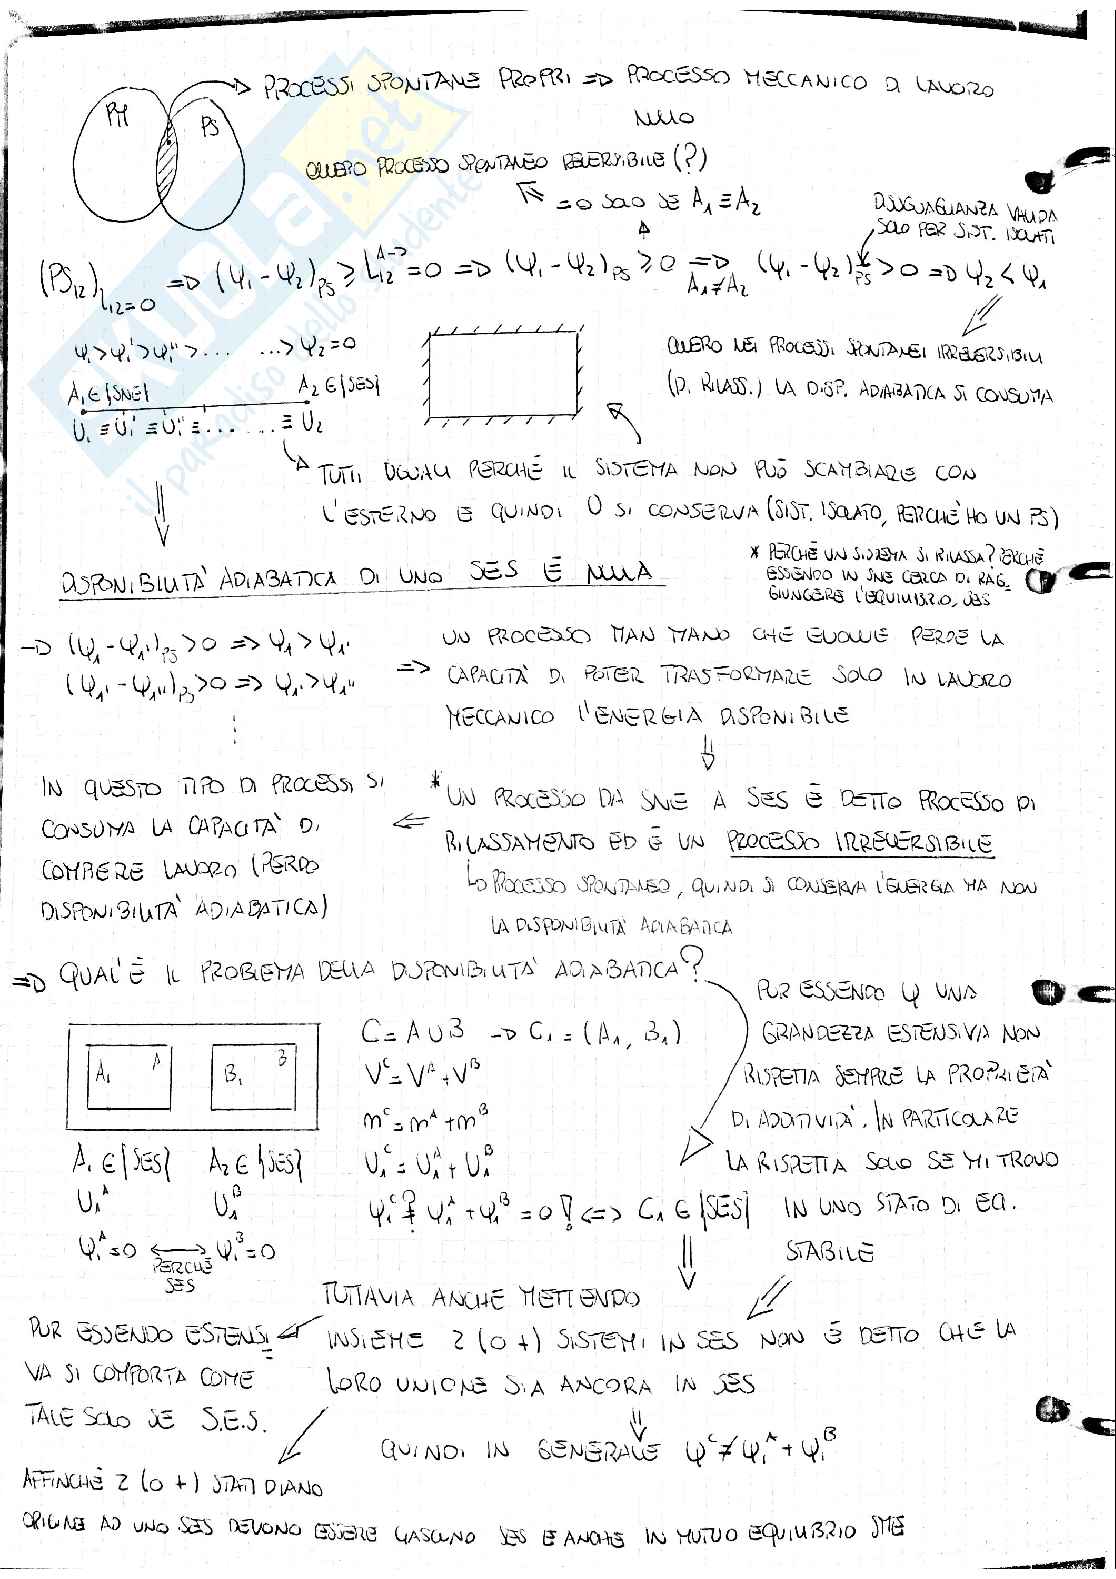 PM PS
PROCESSI SPONTANEI PROPRI => PROCESSO MECCANICO DI LAVORO
NULLO
OVVERO PROCESSO SPONTANEO REVERSIBILE (?)
= 0 SOLO SE A₁ ≡ A₂
DISUGUAGLIANZA VALIDA
SOLO PER SIST. ISOLATI
(PS₁₂)L₁₂=0 => (Ψ₁ - Ψ₂)PS ≥ L₁₂^A→ = 0 => (Ψ₁ - Ψ₂)PS ≥ 0 => A₁≠A₂ (Ψ₁ - Ψ₂)PS > 0 => Ψ₂ < Ψ₁
Ψ₁ > Ψ₁' > Ψ₁'' > ... ... > Ψ₂ = 0
A₁ ∈ {SNE} A₂ ∈ {SES}
U₁ ≡ U₁' ≡ U₁'' ≡ ... ... ≡ U₂
OVVERO NEI PROCESSI SPONTANEI IRREVERSIBILI
(DI RILASS.) LA DISP. ADIABATICA SI CONSUMA
TUTTI UGUALI PERCHÉ IL SISTEMA NON PUÒ SCAMBIARE CON
L'ESTERNO E QUINDI U SI CONSERVA (SIST. ISOLATO, PERCHÉ HO UN PS)
* PERCHÉ UN SISTEMA SI RILASSA? PERCHÉ
ESSENDO IN SNE CERCA DI RAG-
GIUNGERE L'EQUILIBRIO, SES
DISPONIBILITA' ADIABATICA DI UNO SES È NULLA
→ (Ψ₁ - Ψ₁')PS > 0 => Ψ₁ > Ψ₁'
(Ψ₁' - Ψ₁'')PS > 0 => Ψ₁' > Ψ₁''
UN PROCESSO MAN MANO CHE EVOLVE PERDE LA
=> CAPACITA' DI POTER TRASFORMARE SOLO IN LAVORO
MECCANICO L'ENERGIA DISPONIBILE
IN QUESTO TIPO DI PROCESSI SI
CONSUMA LA CAPACITA' DI
COMPIERE LAVORO (PERDO
DISPONIBILITA' ADIABATICA)
* UN PROCESSO DA SNE A SES È DETTO PROCESSO DI
RILASSAMENTO ED È UN PROCESSO IRREVERSIBILE
↳ PROCESSO SPONTANEO, QUINDI SI CONSERVA L'ENERGIA MA NON
LA DISPONIBILITA' ADIABATICA
=> QUAL'È IL PROBLEMA DELLA DISPONIBILITA' ADIABATICA?
PUR ESSENDO Ψ UNA
GRANDEZZA ESTENSIVA NON
RISPETTA SEMPRE LA PROPRIETA'
DI ADDITIVITA'. IN PARTICOLARE
LA RISPETTA SOLO SE MI TROVO
IN UNO STATO DI EQ.
STABILE
A₁ A B₁ B
C = A ∪ B → C₁ = (A₁, B₁)
V^C = V^A + V^B
m^C = m^A + m^B
U₁^C = U₁^A + U₁^B
Ψ₁^C ?= Ψ₁^A + Ψ₁^B = 0 ! <=> C₁ ∈ {SES}
A₁ ∈ {SES} A₂ ∈ {SES}
U₁^A U₁^B
Ψ₁^A = 0 ↔ Ψ₁^B = 0
PERCHÉ
SES
TUTTAVIA ANCHE METTENDO
INSIEME 2 (O +) SISTEMI IN SES NON È DETTO CHE LA
LORO UNIONE SIA ANCORA IN SES
QUINDI IN GENERALE Ψ^C ≠ Ψ₁^A + Ψ₁^B
PUR ESSENDO ESTENSI-
VA SI COMPORTA COME
TALE SOLO SE S.E.S.
AFFINCHÉ 2 (O +) STATI DIANO
ORIGINE AD UNO SES DEVONO ESSERE CIASCUNO SES E ANCHE IN MUTUO EQUILIBRIO SME
SKUOLA.net
il paradiso dello studente